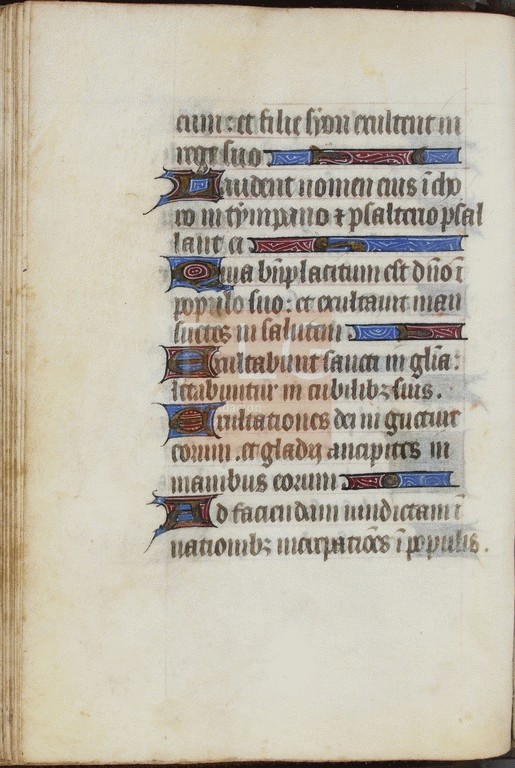 eum : et filie syon exultent in
rege suo
Laudent nomen eius ĩ cho
ro in tympano ⁊ psalterio psal
lant ei
Quia bñplacitum est dño ĩ
populo suo : et exultauit man
suetos in salutem
Exultabunt sancti in glĩa :
letabuntur in cubilibꝫ suis .
Exultationes dei in guttur
eorum . et gladij ancipites in
manibus eorum
Ad faciendam uindictam ĩ
nationibꝫ increpatiões ĩ populis .